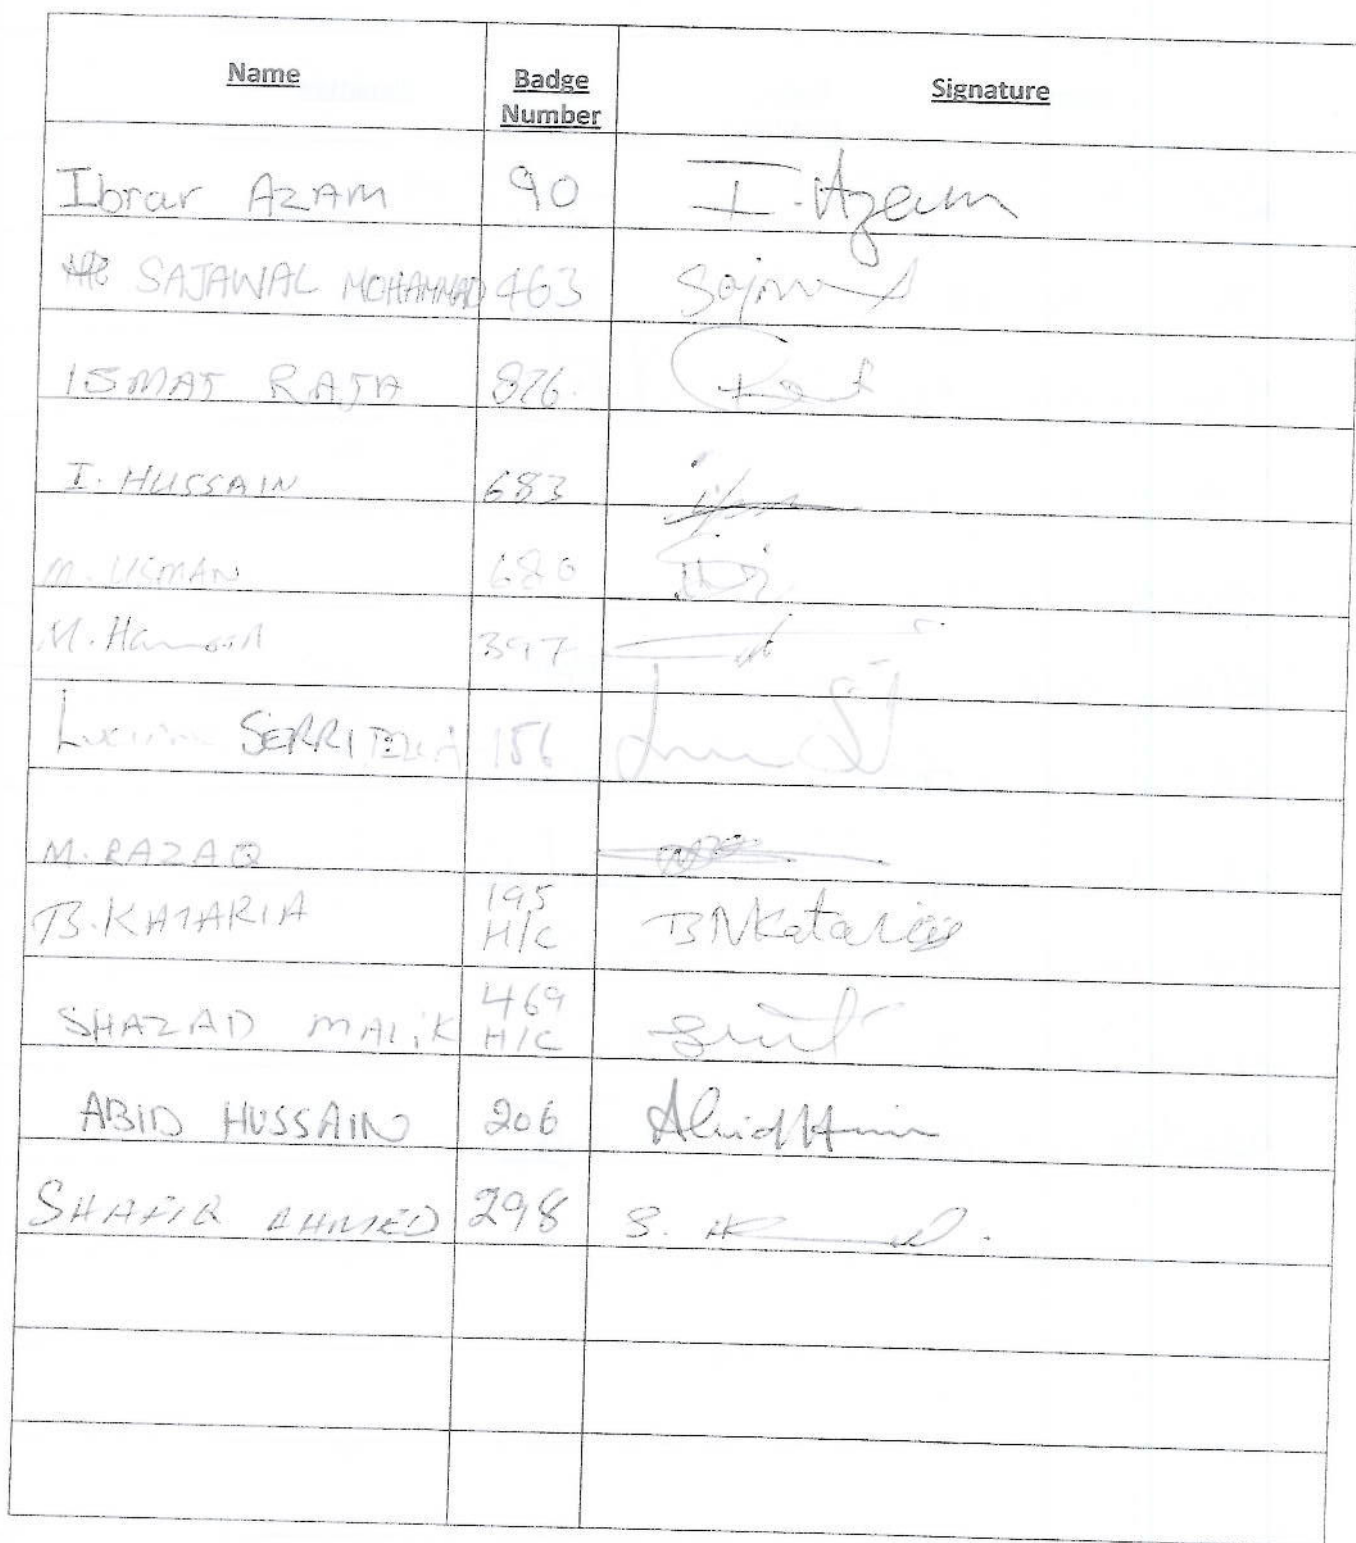 Name Badge Number Signature
Ibrar AZAM 90 I. Azam
SAJAWAL MOHAMMAD 463
ISMAT RAJA 826.
I. HUSSAIN 683
M. USMAN 680
M. 397
SERRITELLA 156
M. RAZAQ
B. KATARIA 195 H/C BNKataria
SHAZAD MALIK 469 H/C
ABID HUSSAIN 206 Abid
SHAFIQ AHMED 298 S.